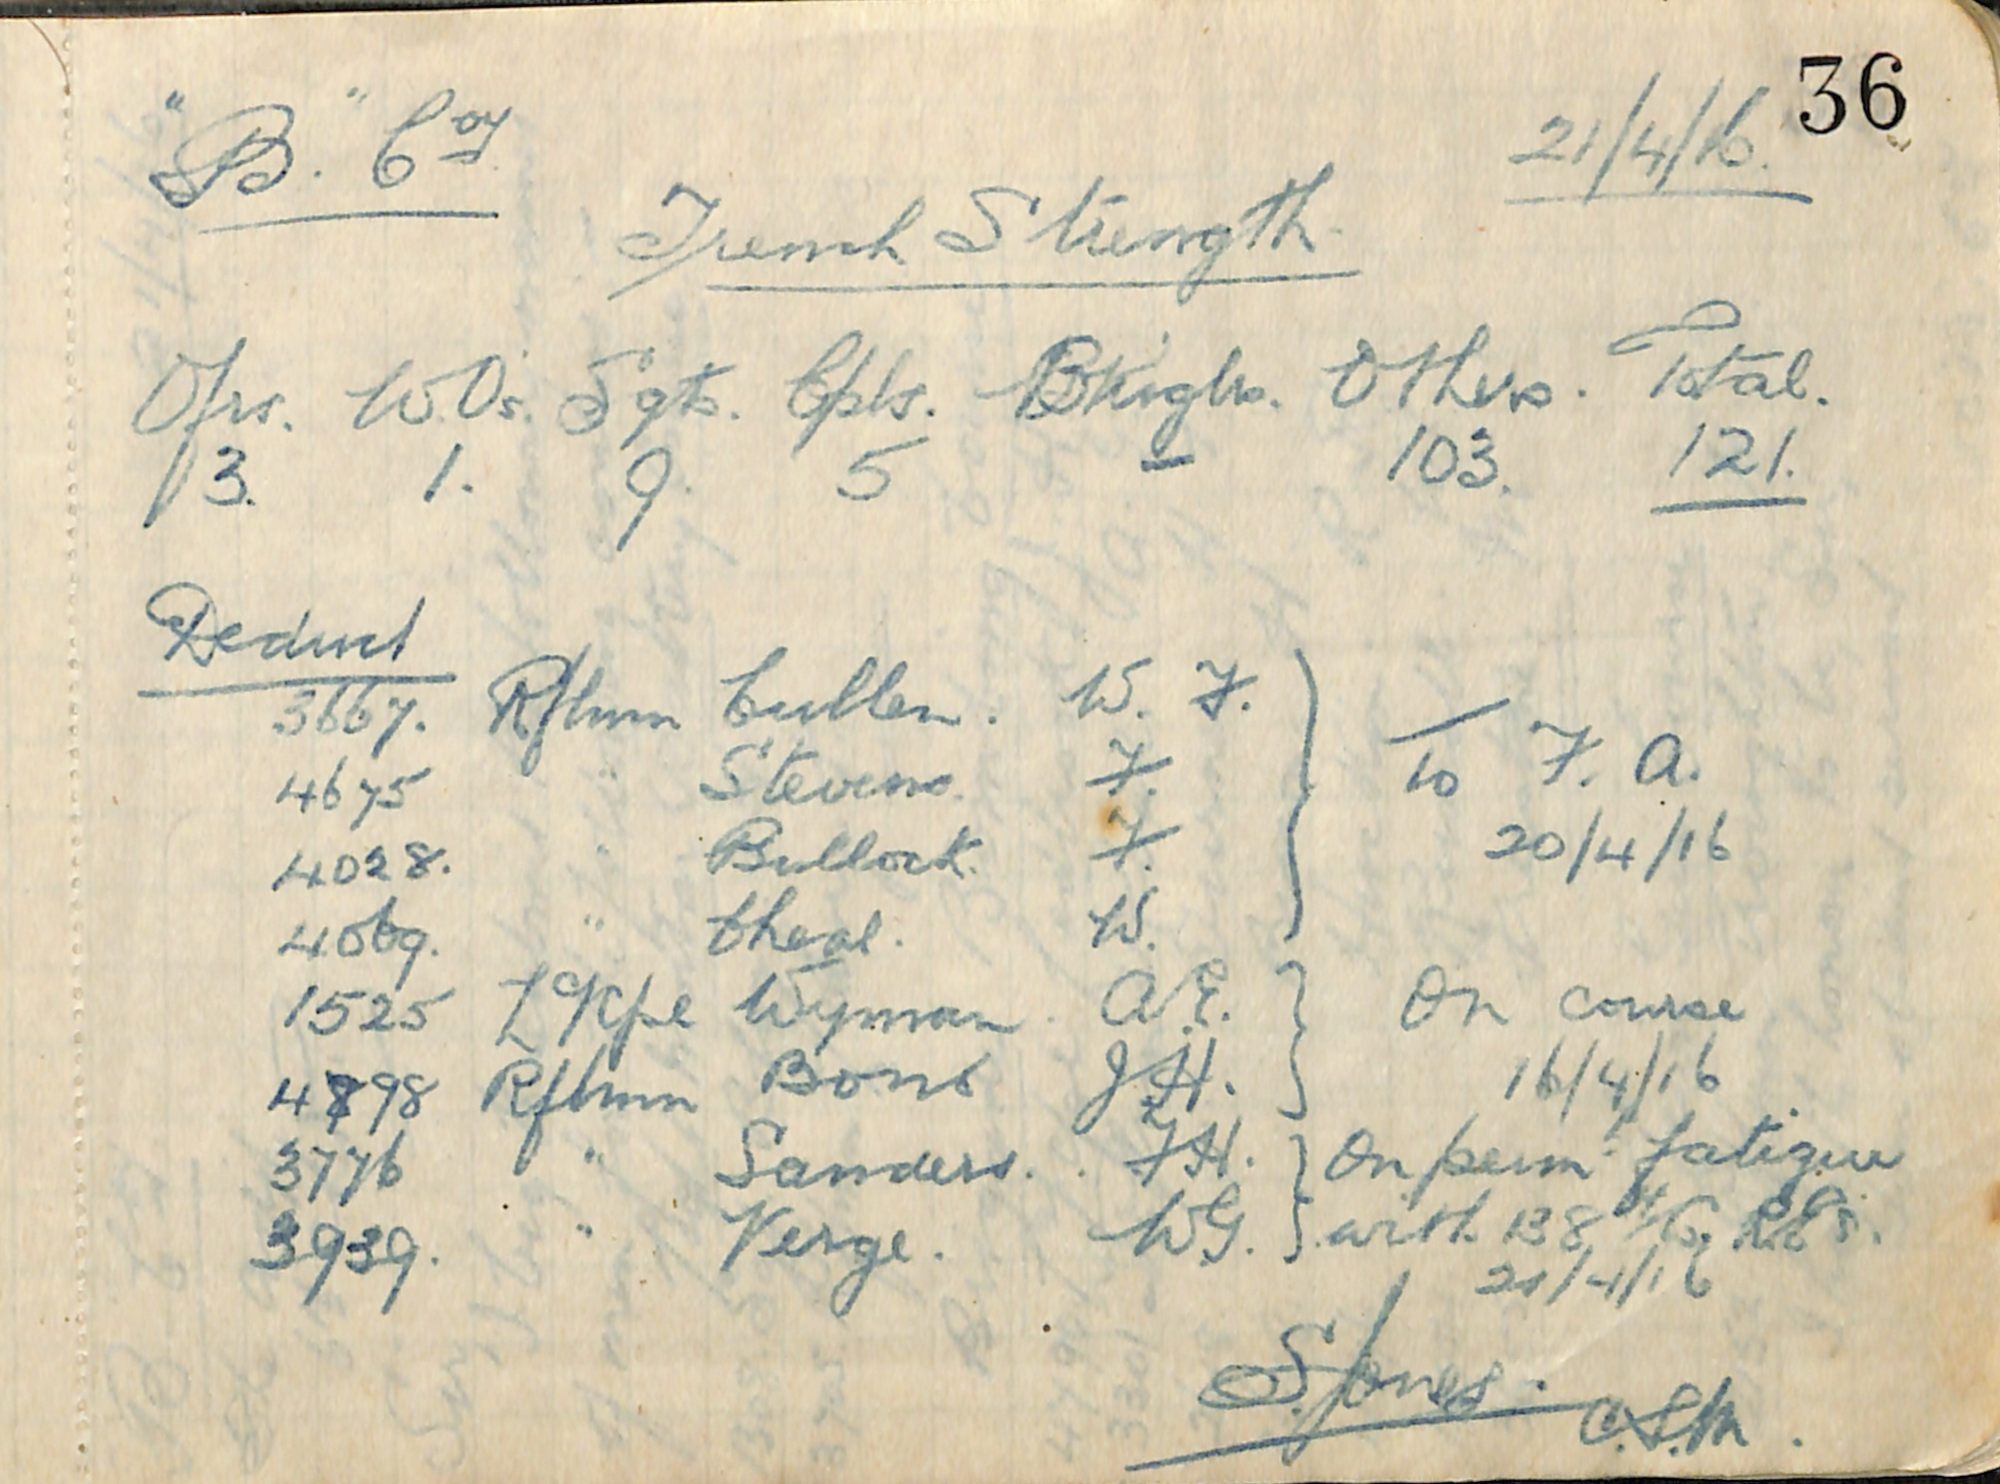 36
"B." Coy 21/4/16.
Trench Strength.
Ofrs. W.Os. Sgts. Cpls. Others. Total.
3. 1. 9. 5 — 103. 121.
Deduct
3667. Rflmn Cullen. W. F.
4675 " Stevens. F.
To F. A.
4028. " Bullock. F.
20/4/16
4069. " Cheal. W.
1525 L/Cpl Wyman. A.E. On course
4898 Rflmn Bone J.H. 16/4/16
3776 " Sanders. F.H. On perm.t fatigue
3939. " Verge. W.G. with 138th
21/4/16
S. Jones.
C.S.M.